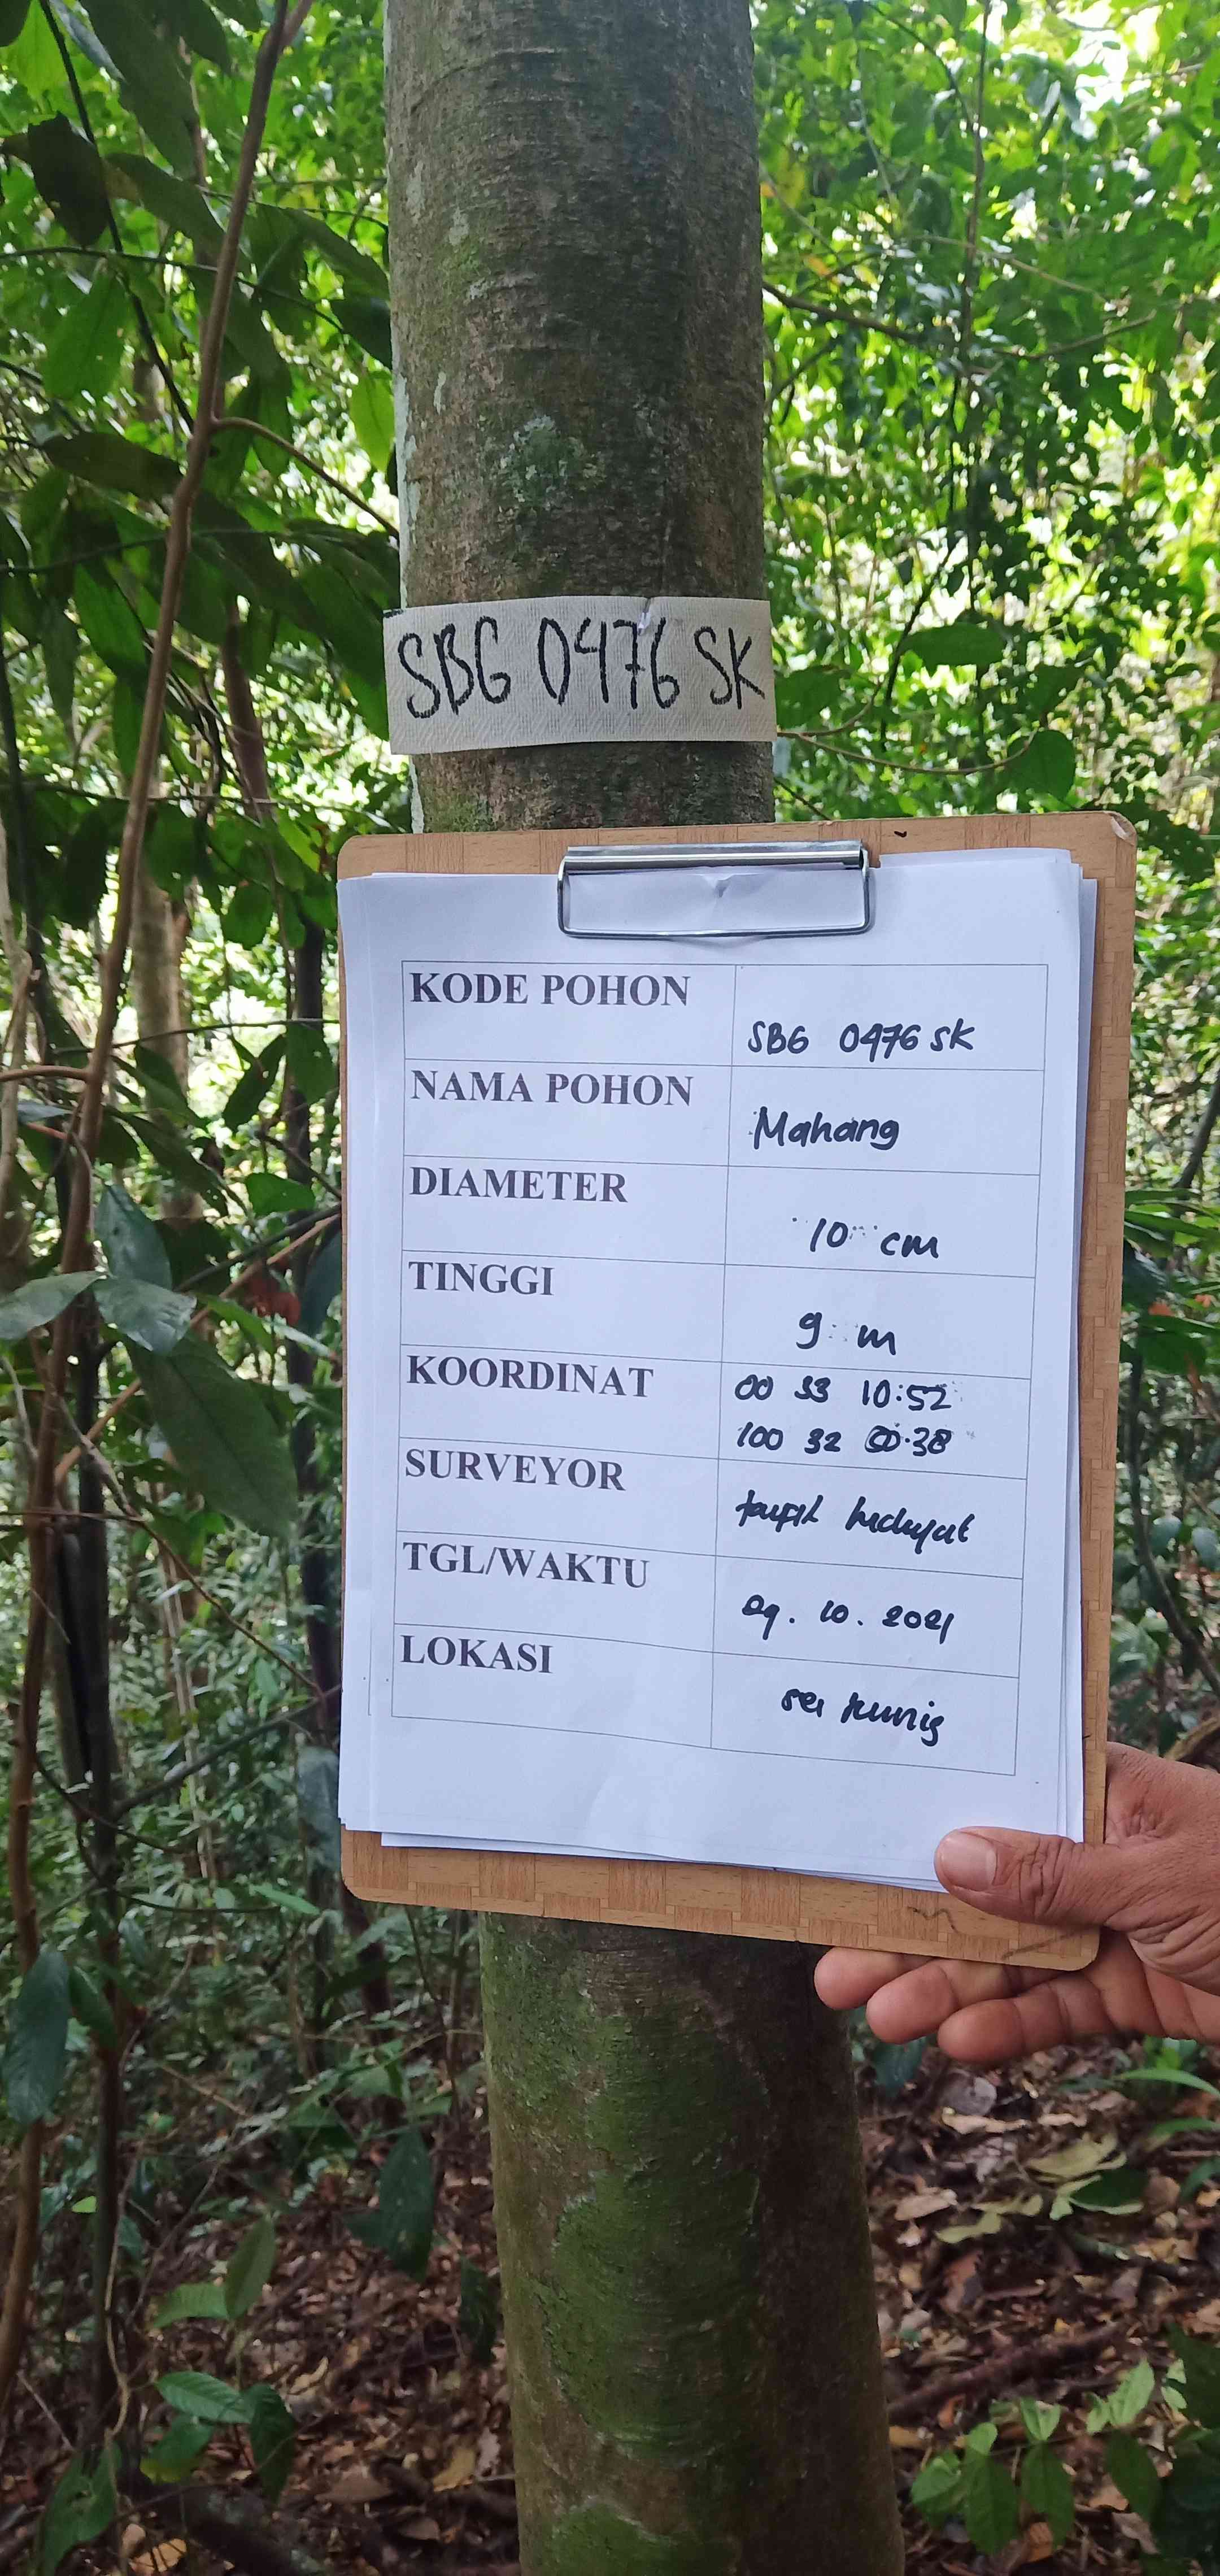 SBG 0476 SK
KODE POHON
SBG 0476 SK
NAMA POHON
Mahang
DIAMETER
10 cm
TINGGI
9 m
KOORDINAT
00 33 10:52
100 32 00.38
SURVEYOR
taufik hidayat
TGL/WAKTU
09. 10. 2021
LOKASI
sei kunig